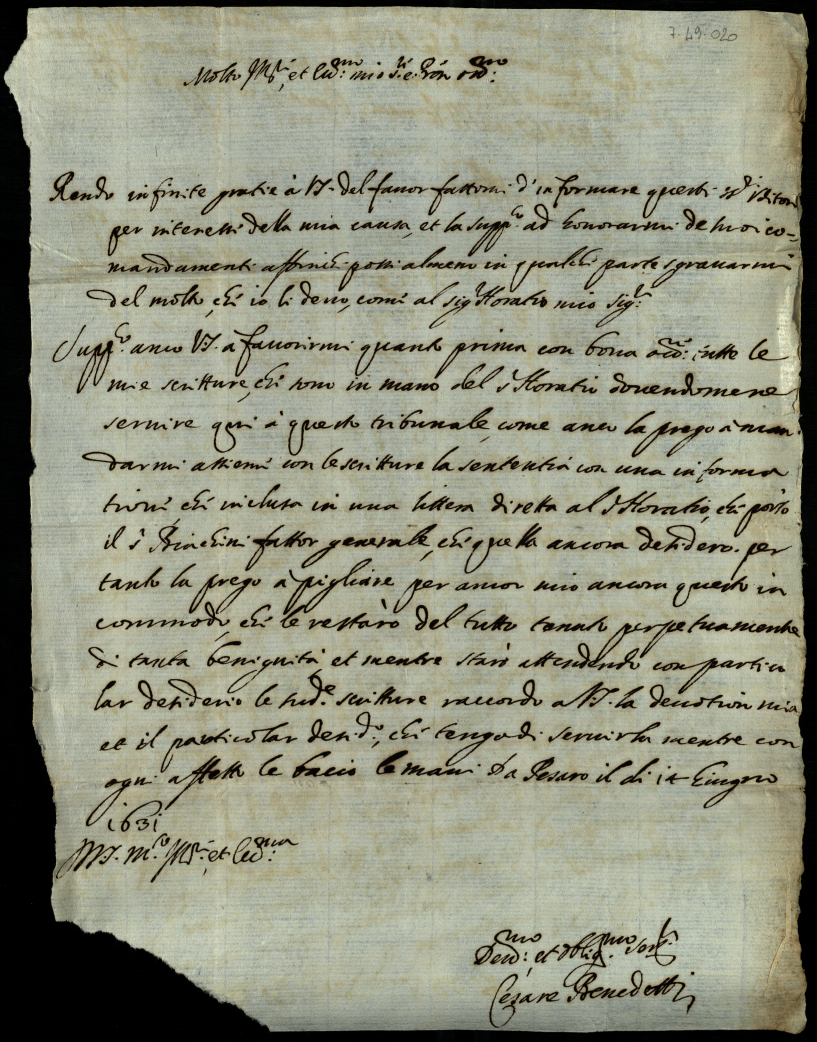 7-49-020
Molto Ill.re et Ecc.mo mio S.re e Pron oss.mo:
Rendo infinite gratie à V.S. del favor fattomi d'informare questi s.ri Uditori
per interessi della mia causa, et la supp.co ad honorarmi de suoi co-
mandamenti affinchi possi almeno in qualchi parte sgravarmi
del molto, chi io li devo, comi al sig.r Horatio mio sig.re
Supp.co anco V.S. a favorirmi quanto prima con bona occ.ne: tutte le
mie scritture, chi sono in mano del s.r Horatio dovendomene
servire qui à questo tribunale, come anco la prego à man-
darmi assiemi con le scritture la sententia con una informa
tioni chi inclusa in una littera diretta al s.r Horatio, chi portò
il s.r Bianchini fattor generale, chi quella ancora desidero. per
tanto la prego à pigliare per amor mio ancora questo in
commodo, chi le restarò del tutto tenuto perpetuamente
di tanta benignità et mentre starò attendendo con partico
lar desiderio le sud.e: scritture raccordo a V.S. la devotion mia
et il particolar desid.o, chi tengo di servirla mentre con
ogni affetto le bacio le mani Da Pesaro il di 14 Giugno
1631
D V.S. m.to Ill.re: et Ecc.ma
Dev.mo: et oblig.mo Ser.re
Cesare Benedetti